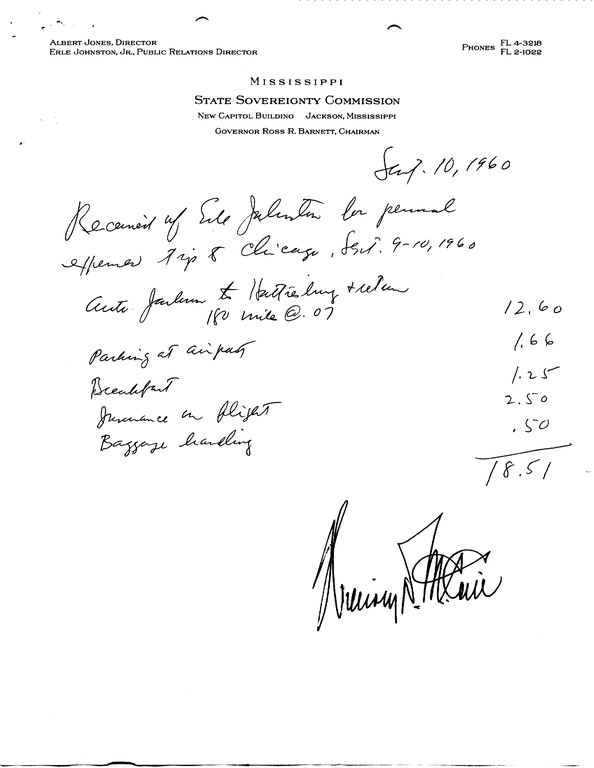 ALBERT JONES, DIRECTOR
ERLE JOHNSTON, JR., PUBLIC RELATIONS DIRECTOR
PHONES FL 4-3218
FL 2-1022
MISSISSIPPI
STATE SOVEREIGNTY COMMISSION
NEW CAPITOL BUILDING JACKSON, MISSISSIPPI
GOVERNOR ROSS R. BARNETT, CHAIRMAN
Sept. 10, 1960
Received of Erle Johnston for personal
expenses trip to Chicago, Sept. 9-10, 1960
Auto. Jackson to Hattiesburg + return
180 mile @ .07 12.60
Parking at airport 1.66
Breakfast 1.25
Insurance on flight 2.50
Baggage handling .50
18.51